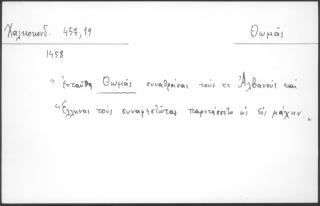 Χαλκοκονδ. 457,19 Θωμᾶς
1458
"ἐνταῦθα Θωμᾶς συναθροίσας τούς τε Ἀλβανοὺς καὶ
Ἕλληνας τοὺς συναφεστῶτας παρετάσσετο ὡς ἐς μάχην."